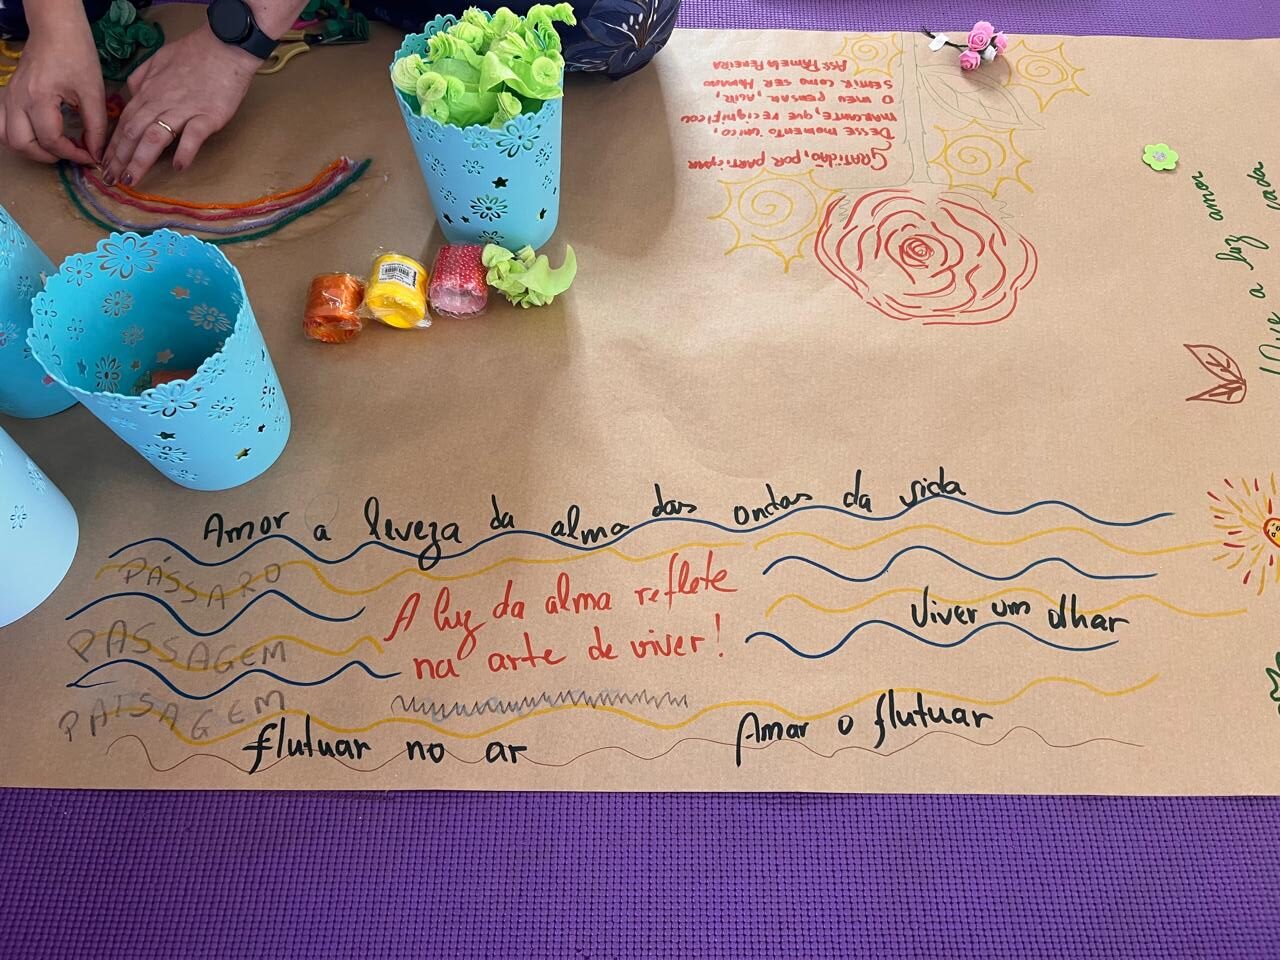 Amor a leveza da alma das ondas da vida
PÁSSARO
PASSAGEM
PAISAGEM
A luz da alma reflete
na arte de viver!
Viver um olhar
flutuar no ar
Amar o flutuar
GRATIDÃO, POR PARTICIPAR
DESSE MOMENTO ÚNICO,
MARCANTE, QUE RECIGNIFICOU
O MEU PENSAR, AGIR,
SENTIR COMO SER HUMANO
ASS: PAMELA PEREIRA
Que a luz amor